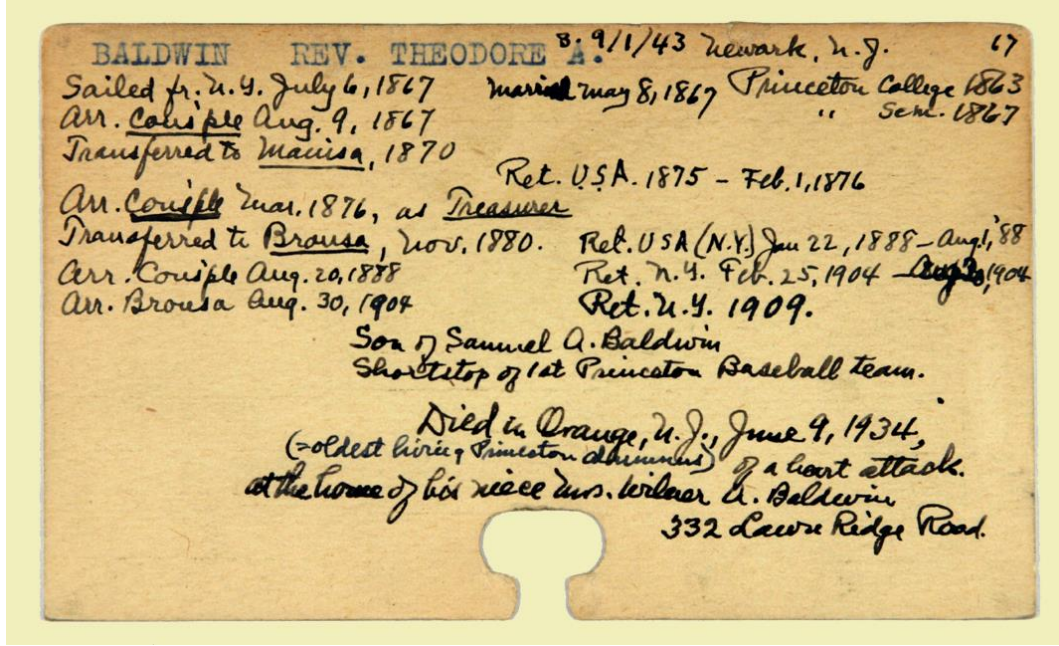 BALDWIN REV. THEODORE A. B. 9/1/43 Newark, N.J. 67
Sailed fr. N.Y. July 6, 1867 Married May 8, 1867 Princeton College 1863
Arr. Consple Aug. 9, 1867 " Sem. 1867
Transferred to Manisa, 1870
Ret. U.S.A. 1875 - Feb. 1, 1876
Arr. Consple Mar. 1876, as Treasurer
Transferred to Brousa, Nov. 1880. Ret. USA (N.Y.) Jan 22, 1888 - Aug 1, '88
Arr. Consple Aug. 20, 1888 Ret. N.Y. Feb. 25, 1904 - Aug 30, 1904
Arr. Brousa Aug. 30, 1904 Ret. N.Y. 1909.
Son of Samuel A. Baldwin
Shortstop of 1st Princeton Baseball team.
Died in Orange, N.J., June 9, 1934,
(=oldest living Princeton alumnus) of a heart attack.
at the home of his niece Mrs. Wilmer A. Baldwin
332 Lawn Ridge Road.